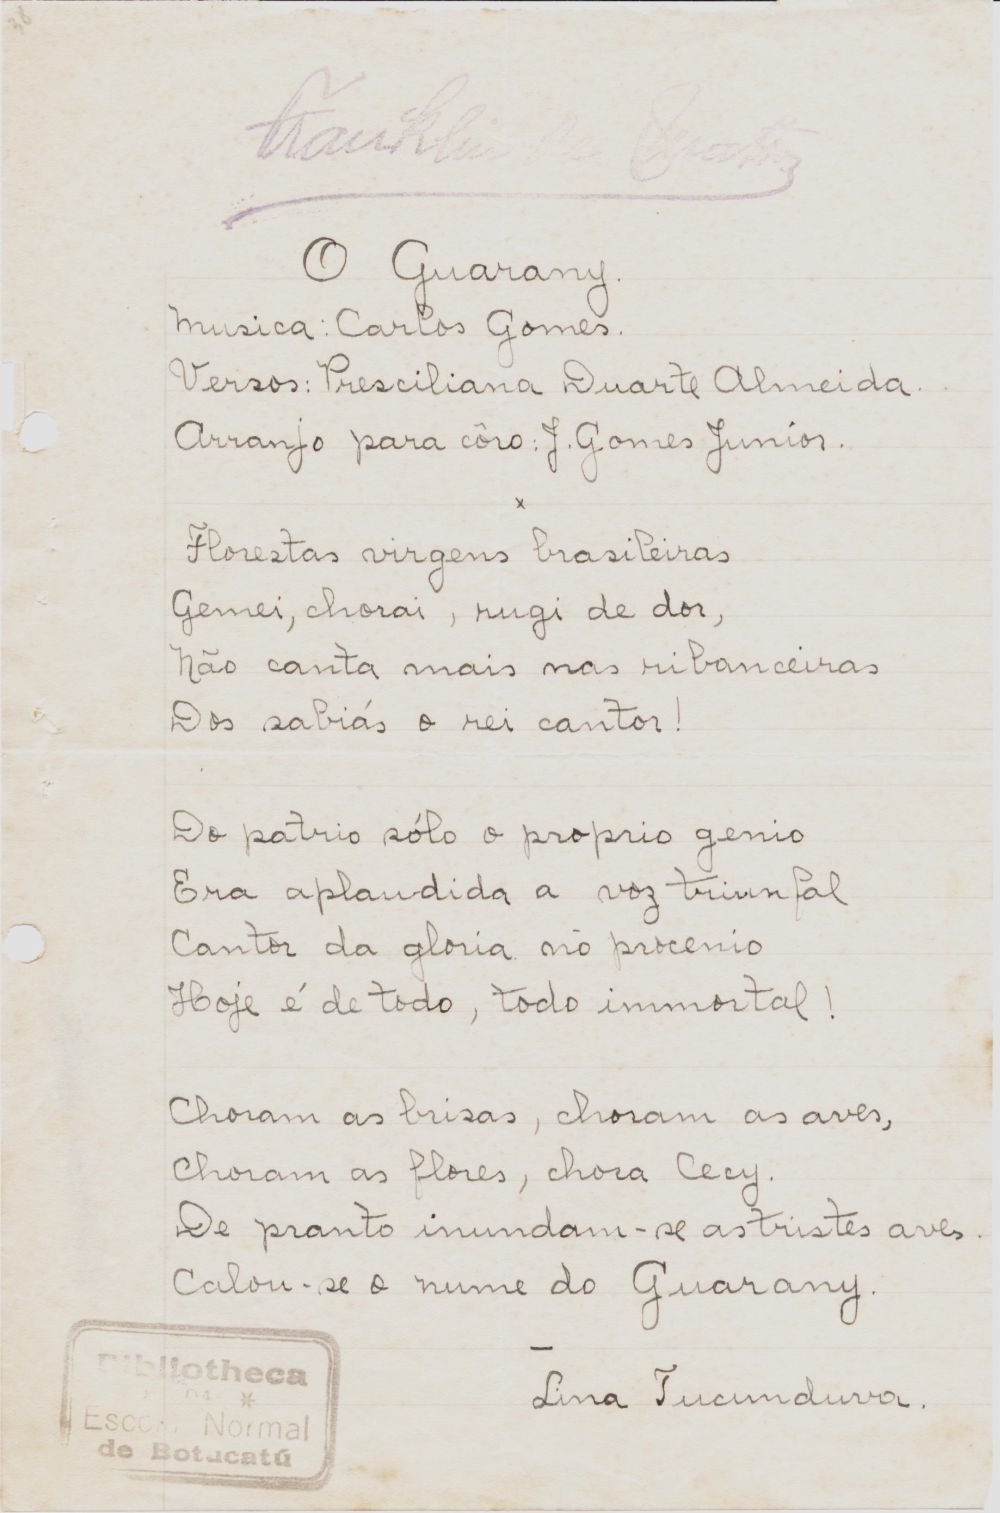 38
Franklin de
O Guarany.
Musica: Carlos Gomes.
Versos: Presciliana Duarte Almeida.
Arranjo para côro: J. Gomes Junior.
x
Florestas virgens brasileiras
Gemei, chorai, rugi de dor,
Não canta mais nas ribanceiras
Dos sabiás o rei cantor!
Do patrio sólo o proprio genio
Era aplaudida a voz triunfal
Cantor da gloria no procenio
Hoje é de todo, todo immortal!
Choram as brisas, choram as aves,
Choram as flores, chora Cecy.
De pranto inundam-se as tristes aves.
Calou-se o nume do Guarany.
Lina Tucunduva.
Bibliotheca
*
Escola Normal
de Botucatú